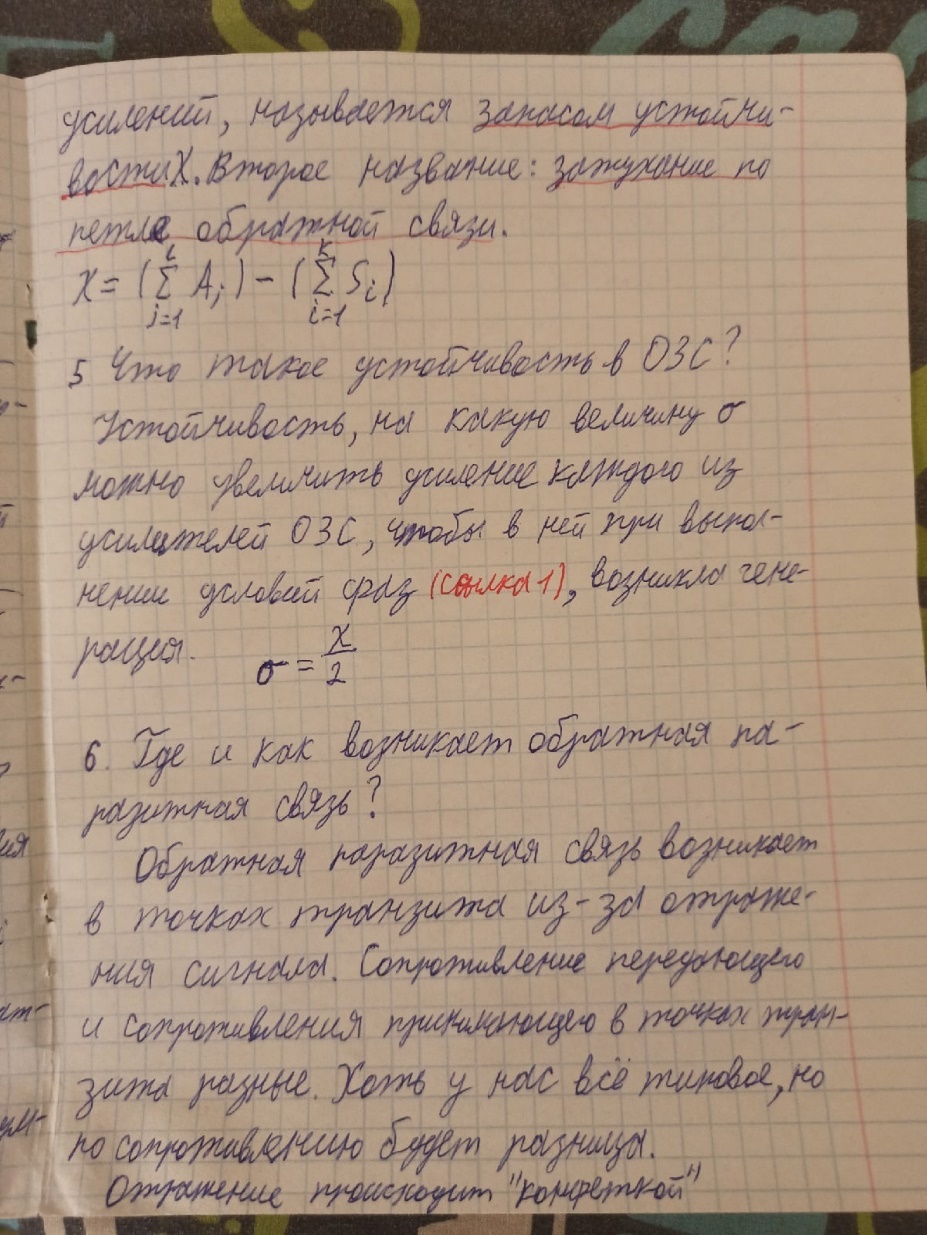 усилений, называется запасом устойчи-
вости X. Второе название: затухание по
петле обратной связи.
X = (∑ A_j) - (∑ S_i)
j=1 i=1
5 Что такое устойчивость в ОЗС?
Устойчивость, на какую величину σ
можно увеличить усиление каждого из
усилителей ОЗС, чтобы в ней при выпол-
нении условий фаз (ссылка 1), возникла гене-
рация. σ = X/2
6. Где и как возникает обратная па-
разитная связь?
Обратная паразитная связь возникает
в точках транзита из-за отраже-
ния сигнала. Сопротивление передающего
и сопротивления принимающего в точках тран-
зита разные. Хоть у нас всё типовое, но
по сопротивлению будет разница.
Отражение происходит "конфеткой"